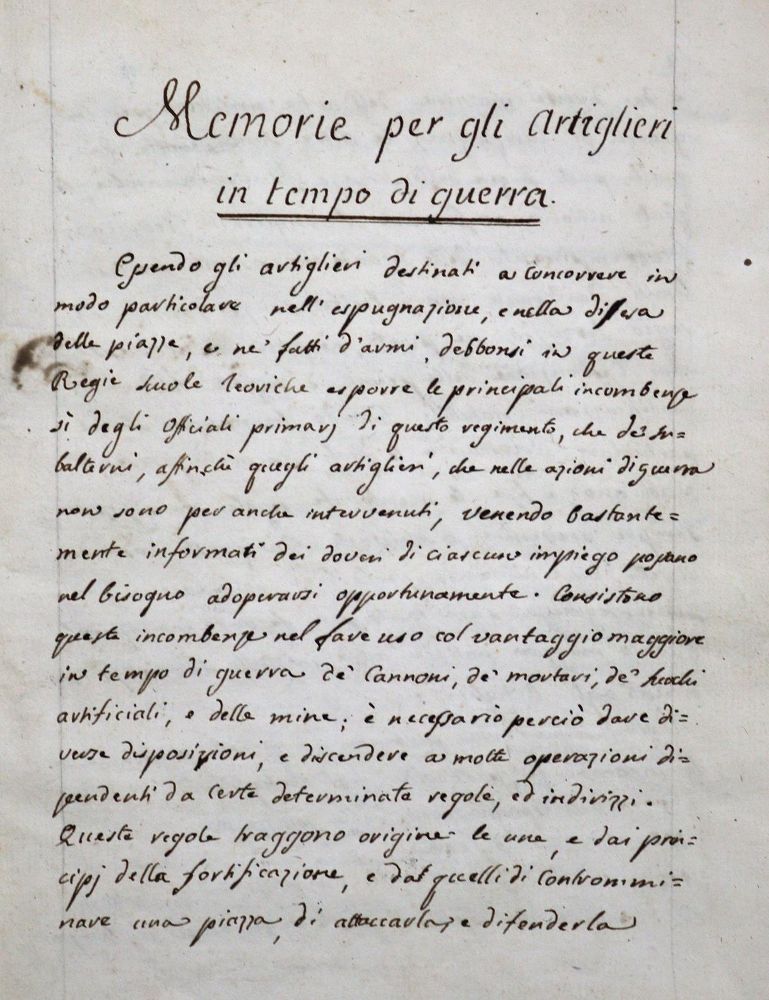 Memorie per gli Artiglieri
in tempo di guerra.
Essendo gli artiglieri destinati a concorrere in
modo particolare nell' espugnazione, e nella difesa
delle piazze, e ne' fatti d'armi, debbonsi in queste
Regie scuole teoriche esporre le principali incombenze
sì degli Officiali primarj di questo regimento, che de' su=
balterni, affinchè quegli artiglieri, che nelle azioni di guerra
non sono per anche intervenuti, venendo bastante=
mente informati dei doveri di ciascuno impiego possano
nel bisogno adoperarsi opportunamente. Consistono
queste incombenze nel fare uso col vantaggio maggiore
in tempo di guerra de' Cannoni, de' mortari, de' fuochi
artificiali, e delle mine; è necessario perciò dare di=
verse disposizioni, e discendere a molte operazioni di=
pendenti da certe determinate regole, ed indirizzi.
Queste regole traggono origine le une, e dai prin=
cipj della fortificazione, e da quelli di Contrommi=
nare una piazza, di attaccarla, e difenderla